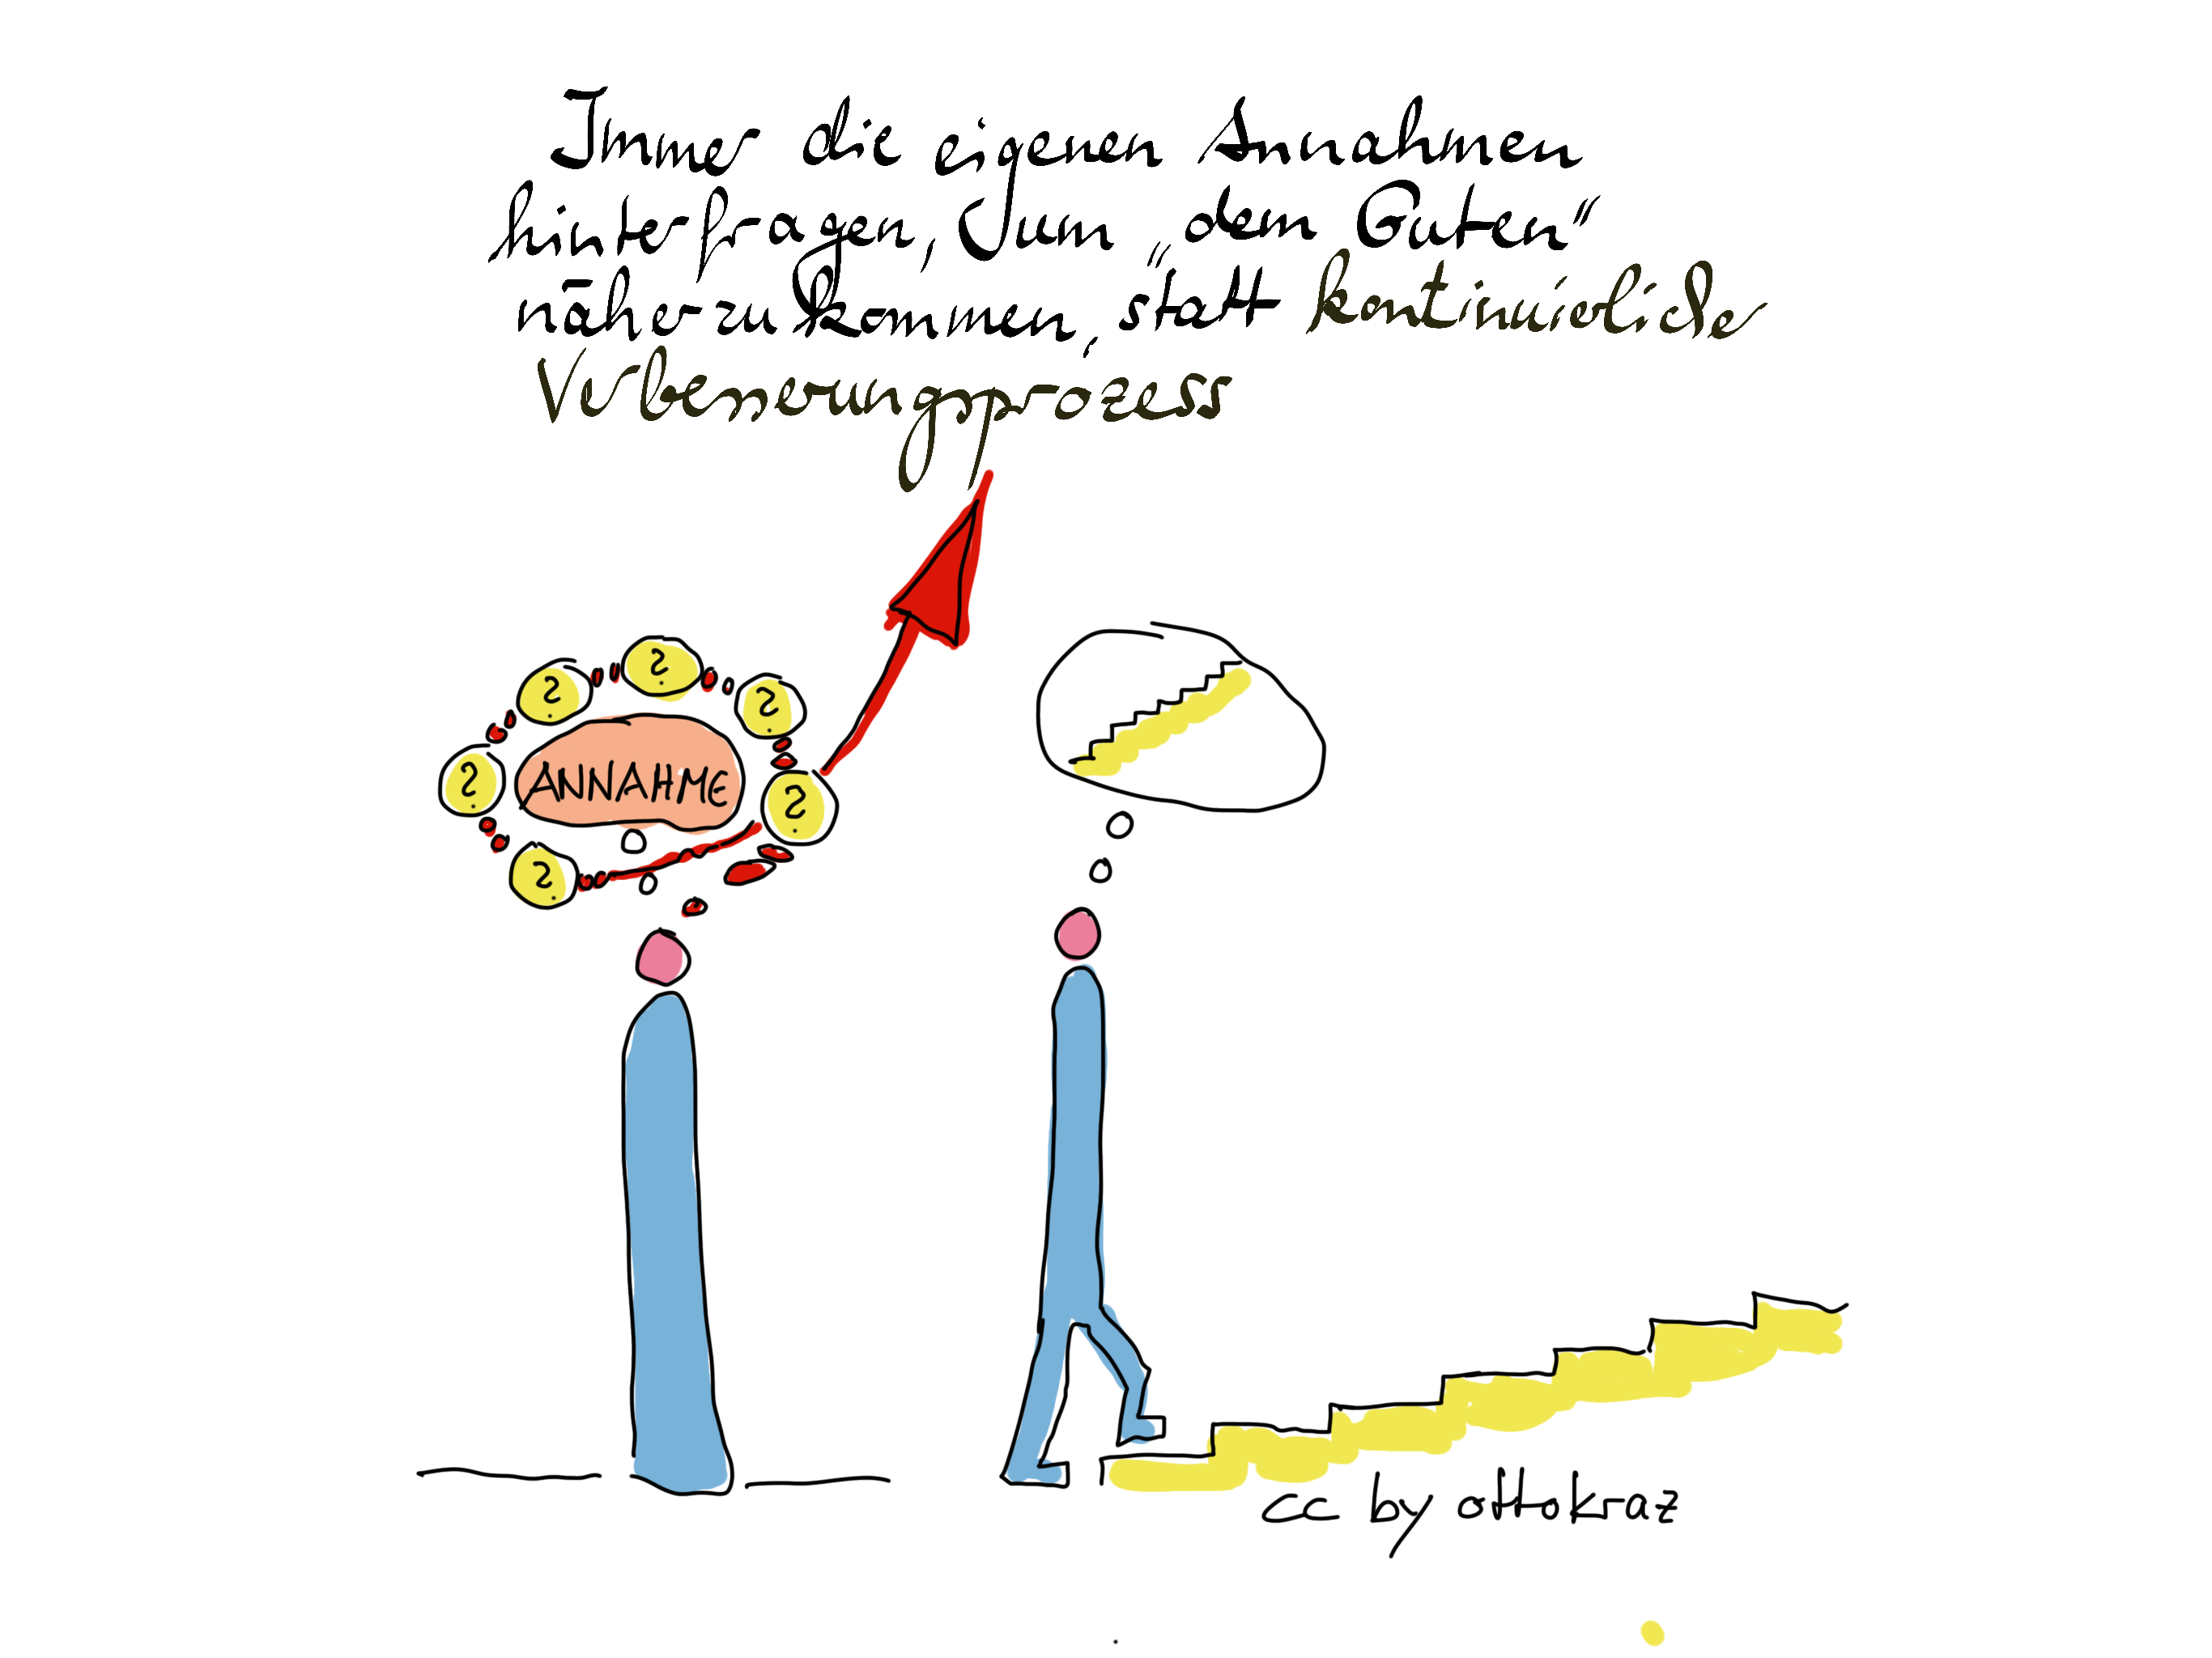 Immer die eigenen Annahmen
hinterfragen, um „dem Guten“
näher zu kommen, statt kontinuierliche
Verbesserungsprozess
? ? ? ? ? ?
ANNAHME
cc by ottokraz